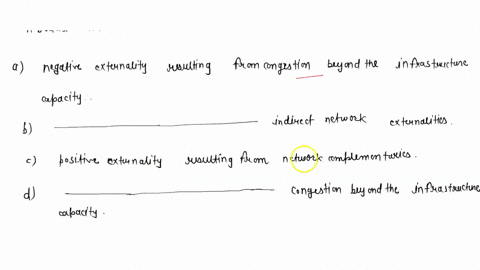 a) negative externality resulting from congestion beyond the infrastructure
capacity.
b) indirect network externalities.
c) positive externality resulting from network complementaries.
d) congestion beyond the infrastructure
capacity.